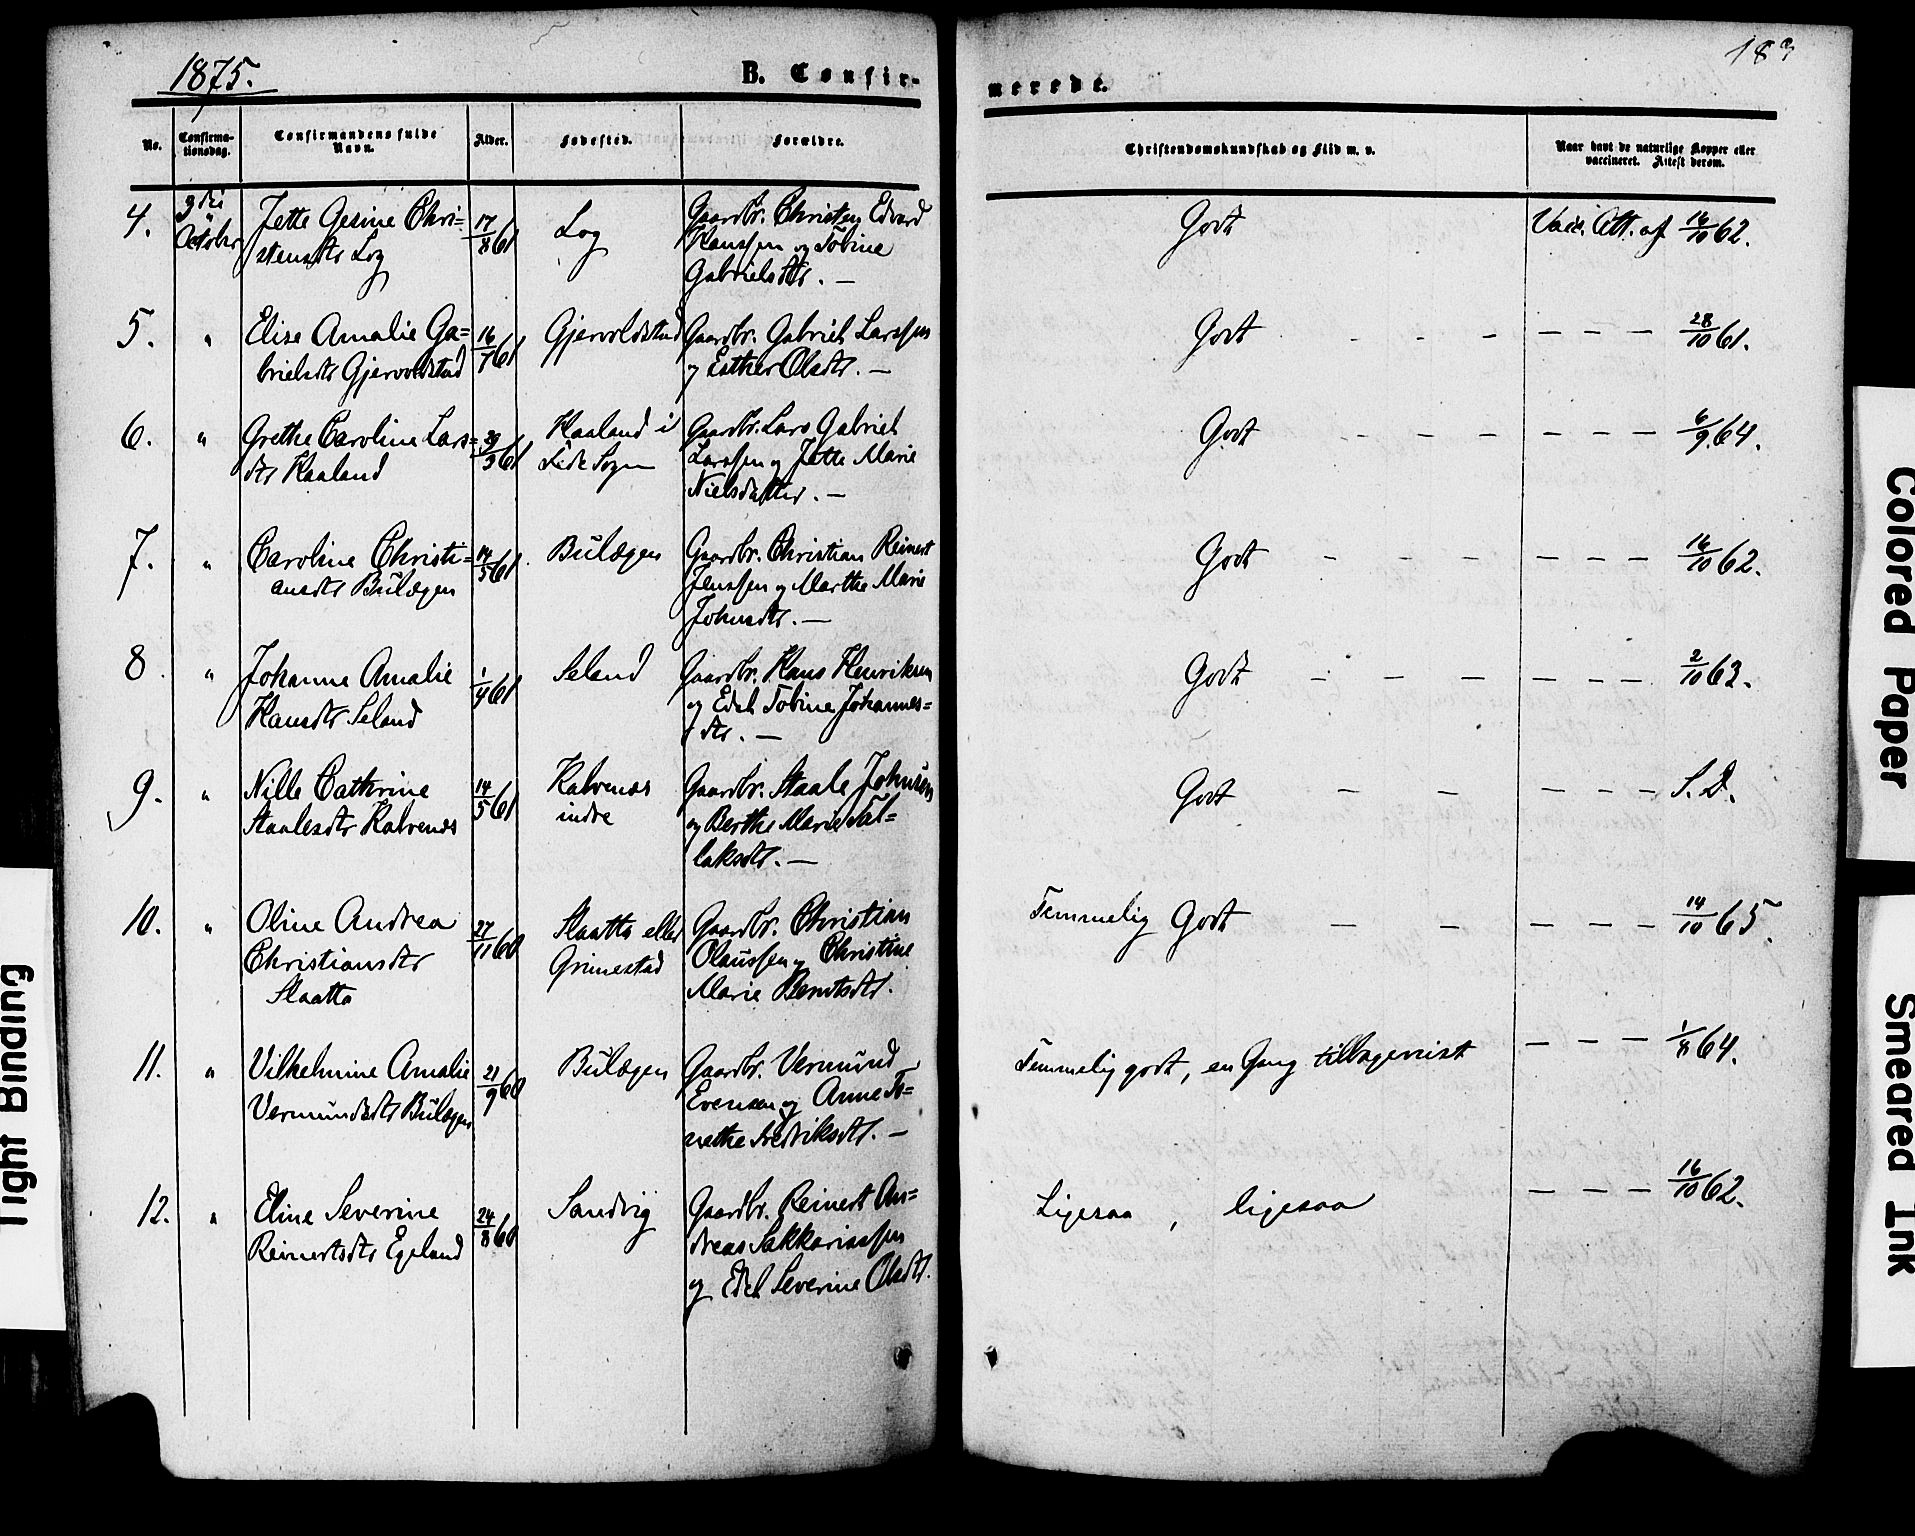 1875.
B. Confir-
merede.
No.
Confirma-
tionsdag.
Confirmandens fulde
Navn.
Alder.
Fødested.
Forældre.
Christendomskundskab og Flid m. v.
Naar havt de naturlige Kopper eller
vaccineret. Attest derom.
4.
3die
October
Jette Gesine Chri=
stensdtr Log
17/8 61
Log
Gaardbr. Christen Edvard
Hanssen og Tobine
Gabrielsdtr. —
Godt
Vacc. Att. af 16/10 62.
5.
"
Elise Amalie Ga=
brielsdtr Gjervoldstad
16/7 61
Gjervoldstad
Gaardbr. Gabriel Larssen
og Esther Olsdtr. —
Godt - - - — — — 28/10 61.
6.
"
Grethe Caroline Lars=
dtr Haaland
Haaland i
Lide Sogn
Gaardbr. Lars Gabriel
Larssen og Jette Marie
Nielsdatter. —
Godt - - - — — — 6/9 64.
7.
"
Caroline Christi=
ansdtr Bülægen
14/5 61
Bülægen
Gaardbr. Christian Reinert
Jenssen og Marthe Marie
Johnsdtr. —
Godt - - - — — — 16/10 62.
8
"
Johanne Amalie
Hansdtr Seland
1/4 61
Seland
Gaardbr. Hans Henriksen
og Edel Tobine Johannes=
dtr. —
Godt - — — — — — 2/10 63.
9.
"
Nille Cathrine
Staalesdtr Kalvenes
14/5 61
Kalvenes
indre
Gaardbr. Staale Johnsen
og Berthe Marie Tal=
laksdtr. —
Godt — — — — — — S. D.
10.
"
Oline Andrea
Christiansdtr
Slaatta
27/11 60
Slaatta eller
Grimestad
Gaardbr. Christian
Olaussen og Christine
Marie Berntsdtr.
Temmelig Godt — — — — — — 14/10 65.
11.
"
Vilhelmine Amalie
Vermundsdtr Bülægen
21/9 60
Bülægen
Gaardbr. Vermünd
Evensen og Anne To=
nethe Fredriksdtr. —
Temmelig godt, en Gang tilbagevist
— — — 1/8 64.
12.
"
Eline Severine
Reinertsdtr Egeland
24/8 60
Sandvig
Gaardbr. Reinert An=
dreas Sakkariassen
og Edel Severine Olsdtr.
Ligesaa , ligesaa
— — — 16/10 62.
Tight Binding
Colored Paper
Smeared Ink